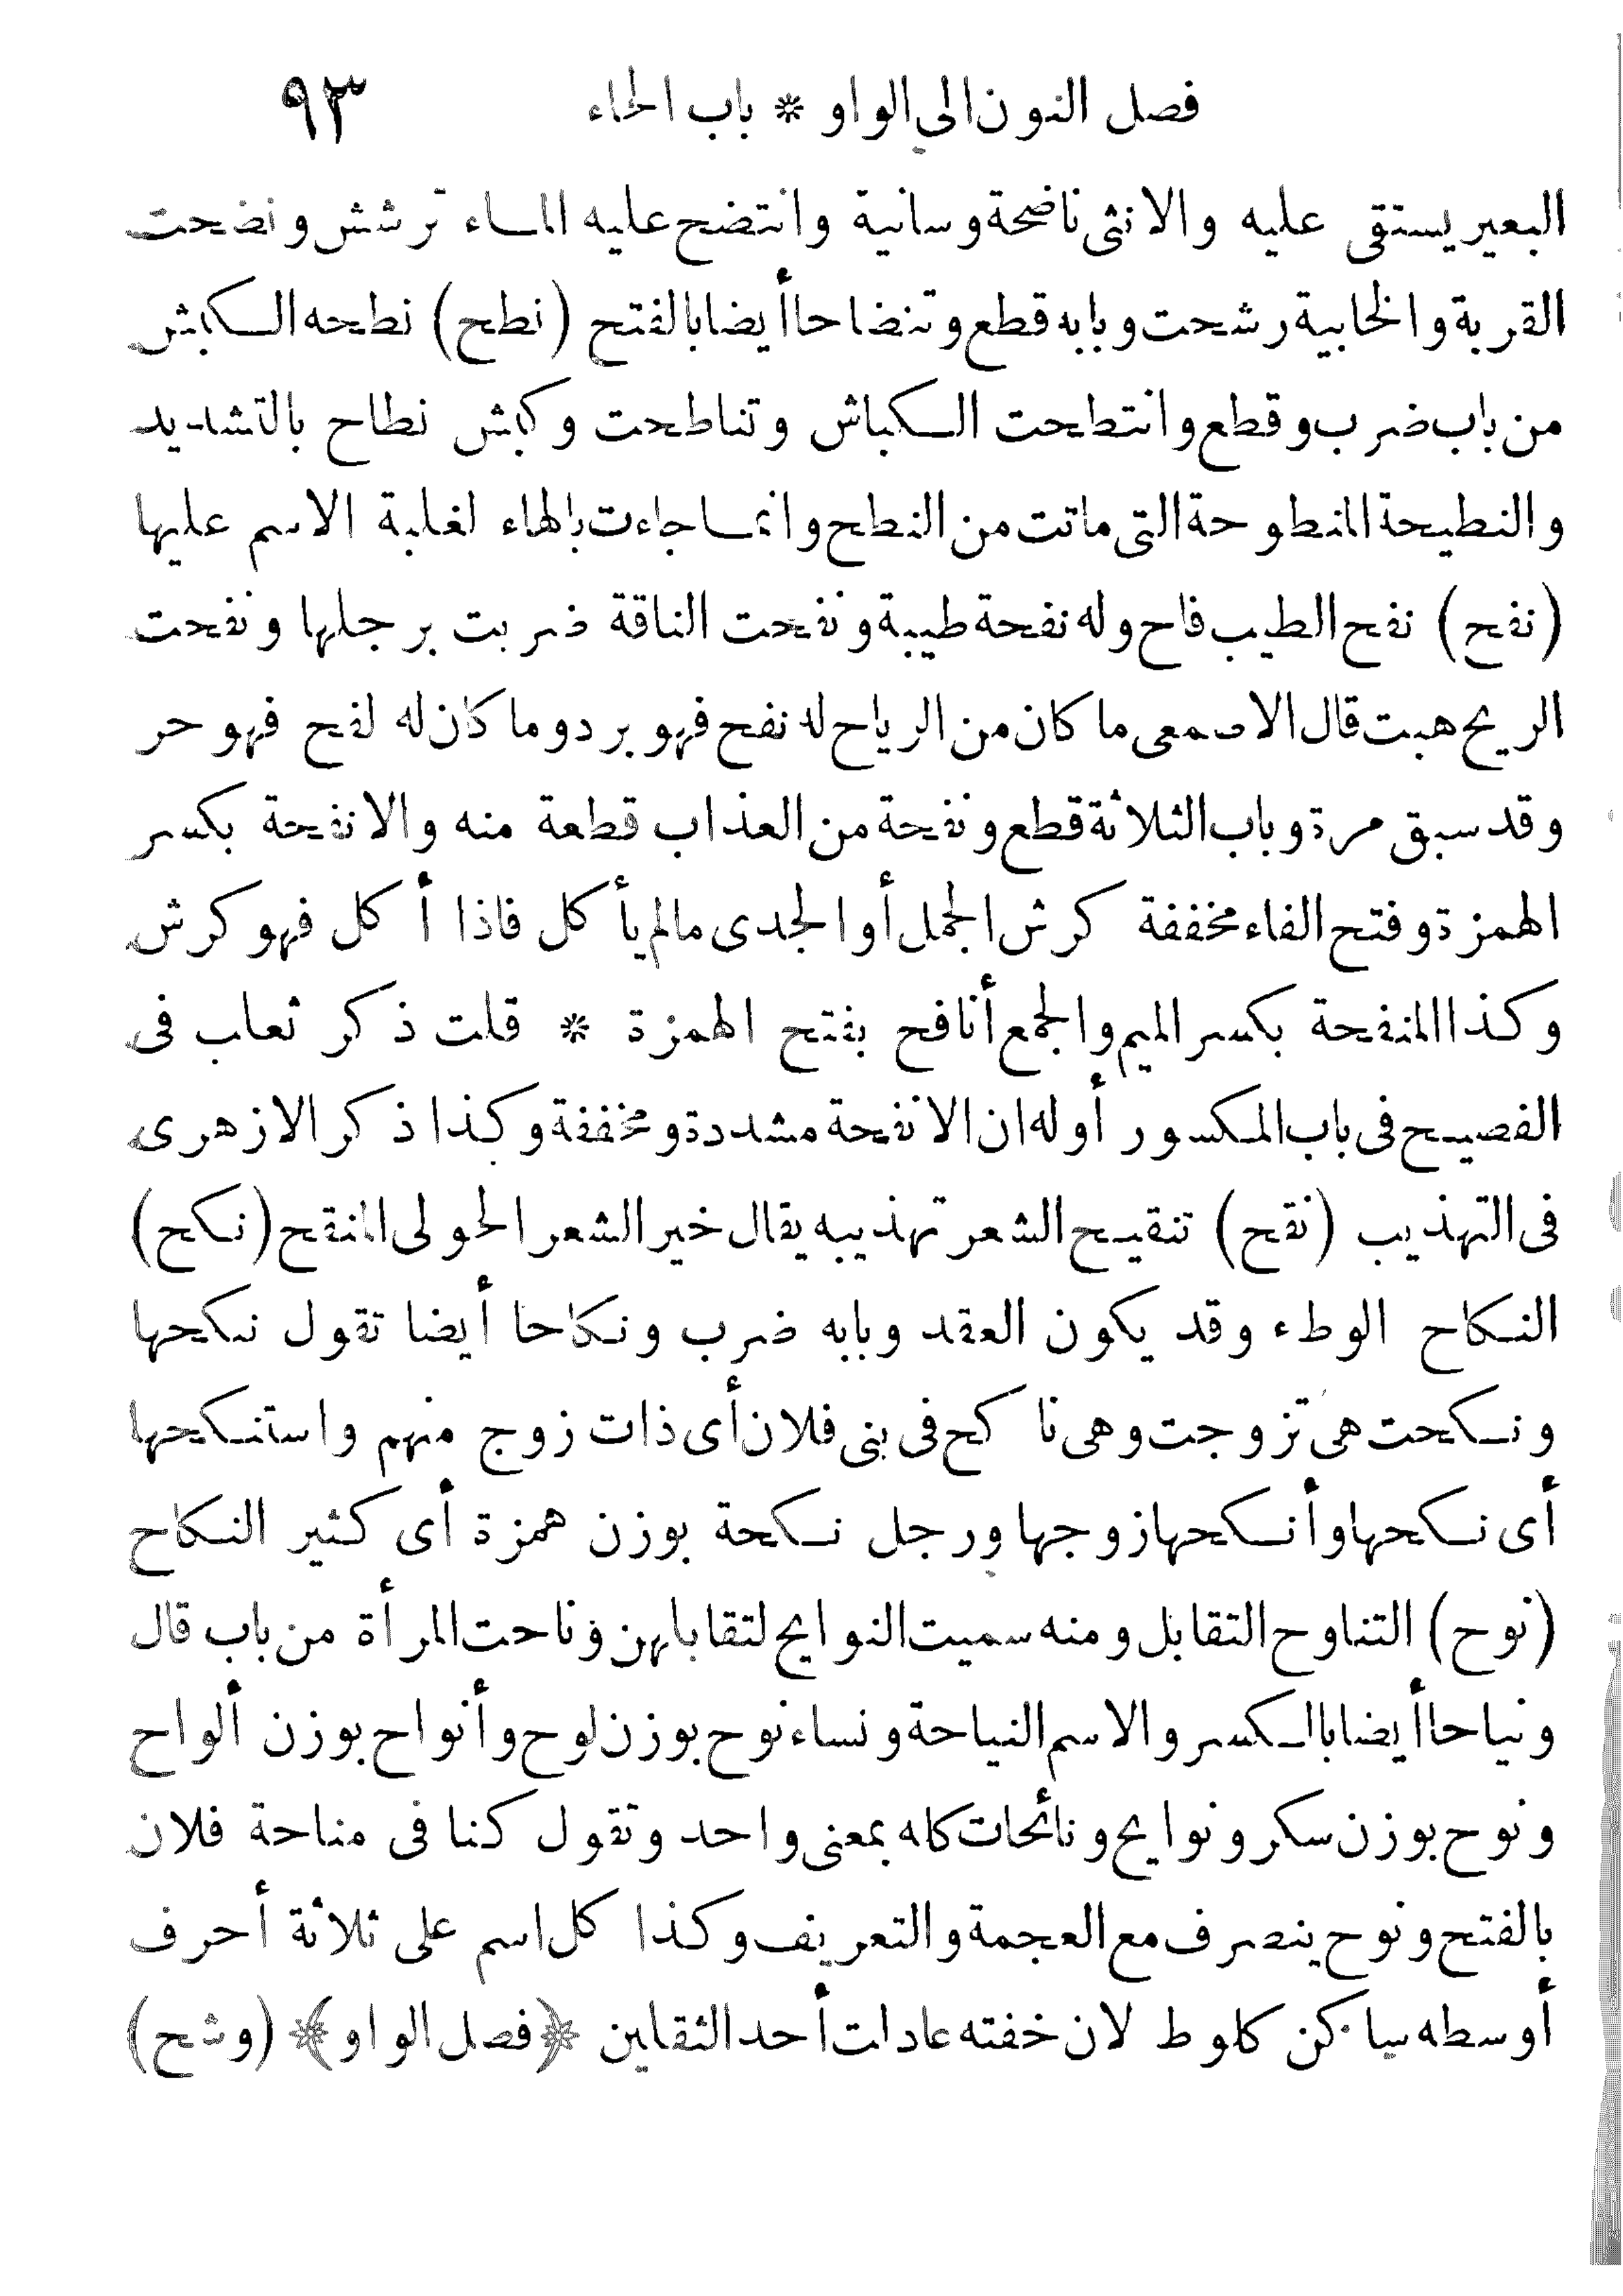 فصل النون الى الواو * باب الحاء ٩٣
البعير يستقى عليه والانثى ناضحة وسانية وانتضح عليه الماء ترشش ونضحت
القربة والخابية رشحت وبابه قطع وتنضاحا أيضا بالفتح (نطح) نطحه الكبش
من باب ضرب وقطع وانتطحت الكباش وتناطحت وكبش نطاح بالتشديد
والنطيحة المنطوحة التى ماتت من النطح وانما جاءت بالهاء لغلبة الاسم عليها
(نفح) نفح الطيب فاح وله نفحة طيبة ونفحت الناقة ضربت برجلها ونفحت
الريح هبت قال الاصمعى ما كان من الرياح له نفح فهو برد وما كان له لفح فهو حر
وقد سبق مرة وباب الثلاثة قطع ونفحة من العذاب قطعة منه والانفحة بكسر
الهمزة وفتح الفاء مخففة كرش الحمل أو الجدى مالم يأكل فاذا أكل فهو كرش
وكذا المنفحة بكسر الميم والجمع أنافح بفتح الهمزة * قلت ذكر ثعلب فى
الفصيح فى باب المكسور أوله ان الانفحة مشددة ومخففة وكذا ذكر الازهرى
فى التهذيب (نقح) تنقيح الشعر تهذيبه يقال خير الشعر الحولى المنقح (نكح)
النكاح الوطء وقد يكون العقد وبابه ضرب ونكاحا أيضا تقول نكحها
ونكحت هى تزوجت وهى ناكح فى بنى فلان أى ذات زوج منهم واستنكحها
أى نكحها وأنكحها زوجها ورجل نكحة بوزن همزة أى كثير النكاح
(نوح) التناوح التقابل ومنه سميت النوايح لتقابلهن وناحت المرأة من باب قال
ونياحا أيضا بالكسر والاسم النياحة ونساء نوح بوزن لوح وأنواح بوزن ألواح
ونوح بوزن سكر ونوايح ونائحات كله بمعنى واحد وتقول كنا فى مناحة فلان
بالفتح ونوح ينصرف مع العجمة والتعريف وكذا كل اسم على ثلاثة أحرف
أوسطه ساكن كلوط لان خفته عادلت أحد الثقلين ﴿فصل الواو﴾ (وشح)